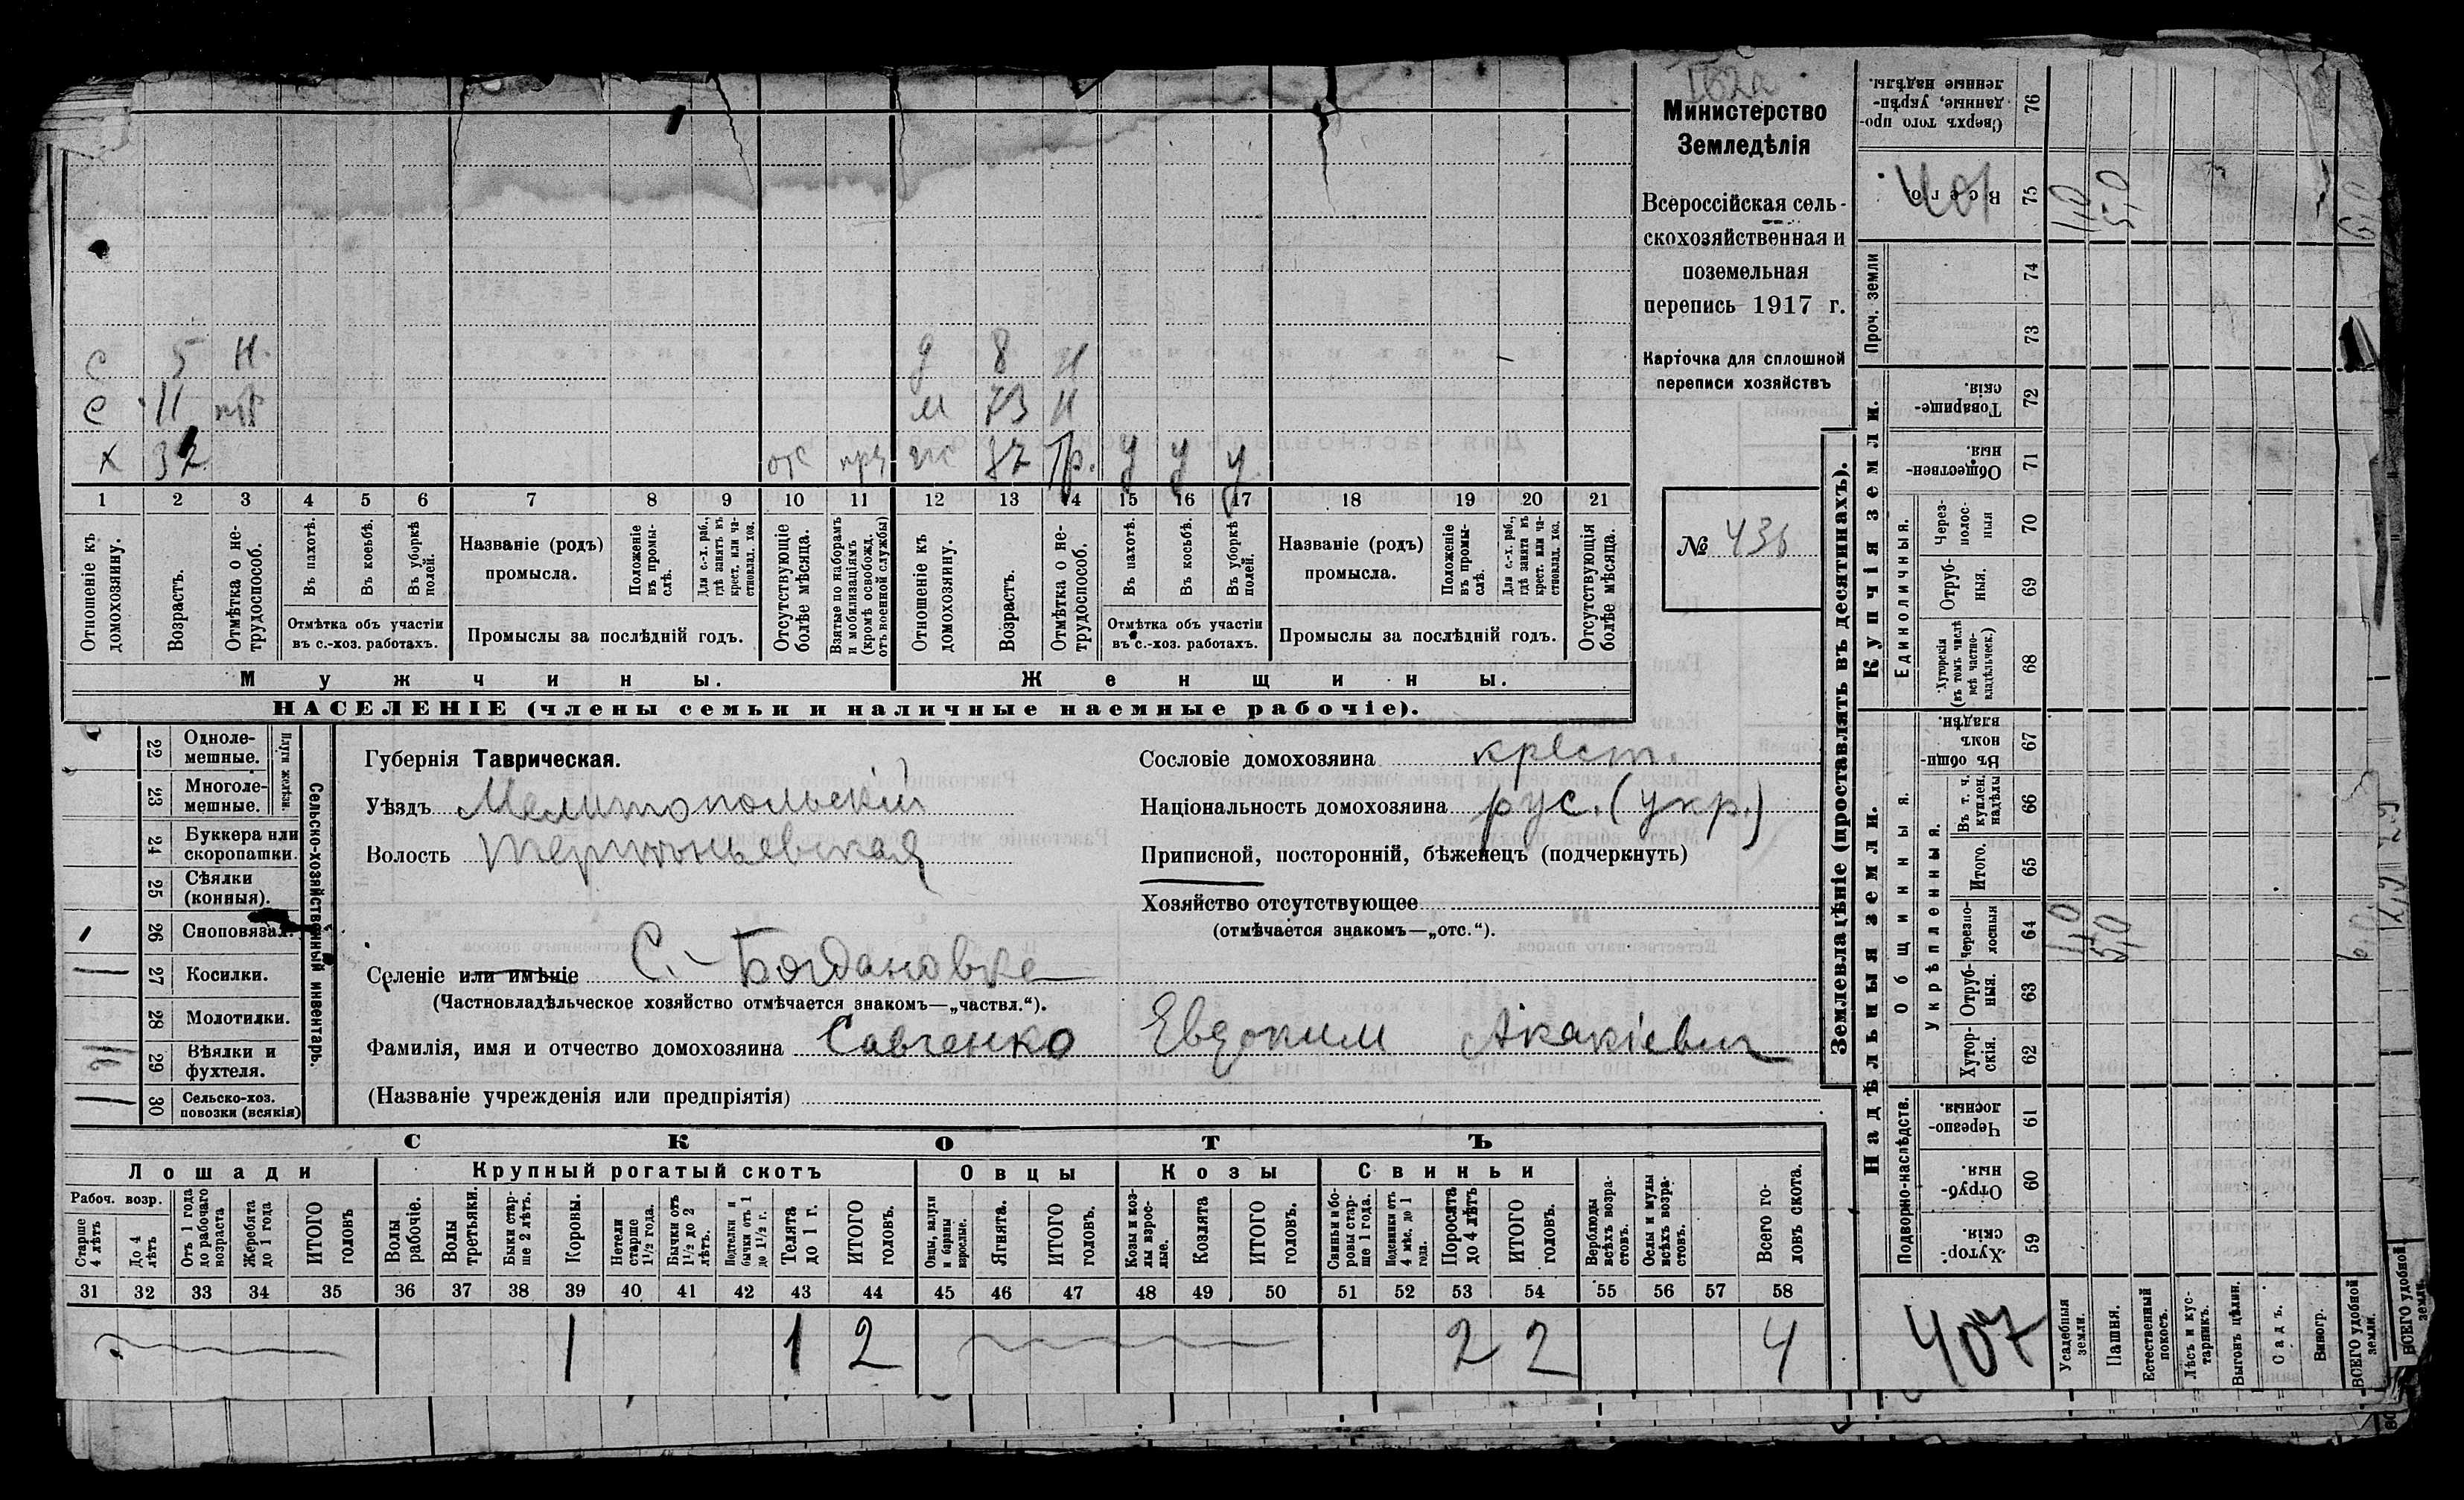 Министерство
Земледѣлія
Всероссійская сель-
скохозяйственная и
поземельная
перепись 1917 г.
Карточка для сплошной
переписи хозяйствъ
№ 436
с 5 н. д 8 н
с 11 м 73 н
х 32 отс жс 37 Тр. у у у
1 2 3 4 5 6 7 8 9 10 11 12 13 14 15 16 17 18 19 20 21
Отношеніе къ домохозяину.
Возрастъ.
Отмѣтка о не-трудоспособ.
Въ пахотѣ.
Въ косьбѣ.
Въ уборкѣ полей.
Отмѣтка объ участіи
въ с.-хоз. работахъ.
Названіе (родъ)
промысла.
Положеніе въ промы-слѣ.
Для с.-х. раб., гдѣ занятъ въ крест. или ча-стновлад. хоз.
Промыслы за послѣдній годъ.
Отсутствующіе болѣе мѣсяца.
Взятые по наборамъ и мобилизаціямъ (кромѣ освобожд. отъ военной службы)
Отношеніе къ домохозяину.
Возрастъ.
Отмѣтка о не-трудоспособ.
Въ пахотѣ.
Въ косьбѣ.
Въ уборкѣ полей.
Отмѣтка объ участіи
въ с.-хоз. работахъ.
Названіе (родъ)
промысла.
Положеніе въ промы-слѣ.
Для с.-х. раб., гдѣ занята въ крест. или ча-стновлад. хоз.
Промыслы за послѣдній годъ.
Отсутствующія болѣе мѣсяца.
Мужчины. Женщины.
НАСЕЛЕНІЕ (члены семьи и наличные наемные рабочіе).
22 Одноле-мешные.
23 Многоле-мешные.
Плуги желѣзн.
24 Буккера или скоропашки.
25 Сѣялки (конныя).
26 Сноповязал.
27 Косилки.
28 Молотилки.
29 Вѣялки и фухтеля.
30 Сельско-хоз. повозки (всякія)
Сельско-хозяйственный инвентарь.
Губернія Таврическая.
Уѣздъ Мелитопольскій
Волость Терпеньевская
Селеніе или имѣніе С.-Богдановка
(Частновладѣльческое хозяйство отмѣчается знакомъ—„частвл.“).
Фамилія, имя и отчество домохозяина Савченко Евдоким Акакіевич
(Названіе учрежденія или предпріятія)
Сословіе домохозяина крест.
Національность домохозяина рус. (укр.)
Приписной, посторонній, бѣженецъ (подчеркнуть)
Хозяйство отсутствующее
(отмѣчается знакомъ—„отс.“).
СКОТЪ
Лошади Крупный рогатый скотъ Овцы Козы Свиньи
Рабоч. возр.
Старше 4 лѣтъ
До 4 лѣтъ
Отъ 1 года до рабочаго возраста
Жеребята до 1 года
ИТОГО головъ
Волы рабочіе.
Волы третьяки.
Быки стар-ше 2 лѣтъ.
Коровы.
Нетели старше 1½ года.
Бычки отъ 1½ до 2 лѣтъ.
Подтелки и бычки отъ 1 до 1½ г.
Телята до 1 г.
ИТОГО головъ.
Овцы, валухи и бараны взрослые.
Ягнята.
ИТОГО головъ.
Козы и коз-лы взрос-лые.
Козлята
ИТОГО головъ.
Свиньи и бо-ровы стар-ше 1 года.
Подсвинки отъ 4 мѣс. до 1 года.
Поросята до 4 лѣтъ
ИТОГО головъ.
Верблюды всѣхъ возра-стовъ.
Ослы и мулы всѣхъ возра-стовъ.
Всего го-ловъ скота.
31 32 33 34 35 36 37 38 39 40 41 42 43 44 45 46 47 48 49 50 51 52 53 54 55 56 57 58
1 1 2 2 2 4
Землевладѣніе (проставлять въ десятинахъ).
Надѣльныя земли. Купчія земли. Проч. земли
Подворно-наслѣдств.
Общинныя.
Укрѣпленныя.
Единоличныя.
Хутор-скія. 59
Отруб-ныя. 60
Черезпо-лосныя. 61
Хутор-скія. 62
Отруб-ныя. 63
Черезпо-лосныя 64
Итого. 65
Въ т. ч. куплен. надѣлы 66
Въ общи-номъ владѣн. 67
Хуторскія (въ томъ числѣ всѣ частно-владѣльческ.) 68
Отруб-ныя. 69
Через-полос-ныя 70
Обществен-ныя. 71
Товарище-скія. 72
73
74
Всего. 75
Сверхъ того про-данные, укрѣп-ленные надѣлы. 76
407
Усадебныя земли. 1,0 1,0
Пашня. 5,0 5,0
Естественный покосъ.
Лѣсъ и кус-тарникъ.
Выгонъ цѣлин.
Садъ.
Виногр.
ВСЕГО удобной земли. 6,0 6,0
ВСЕГО удобной земли.